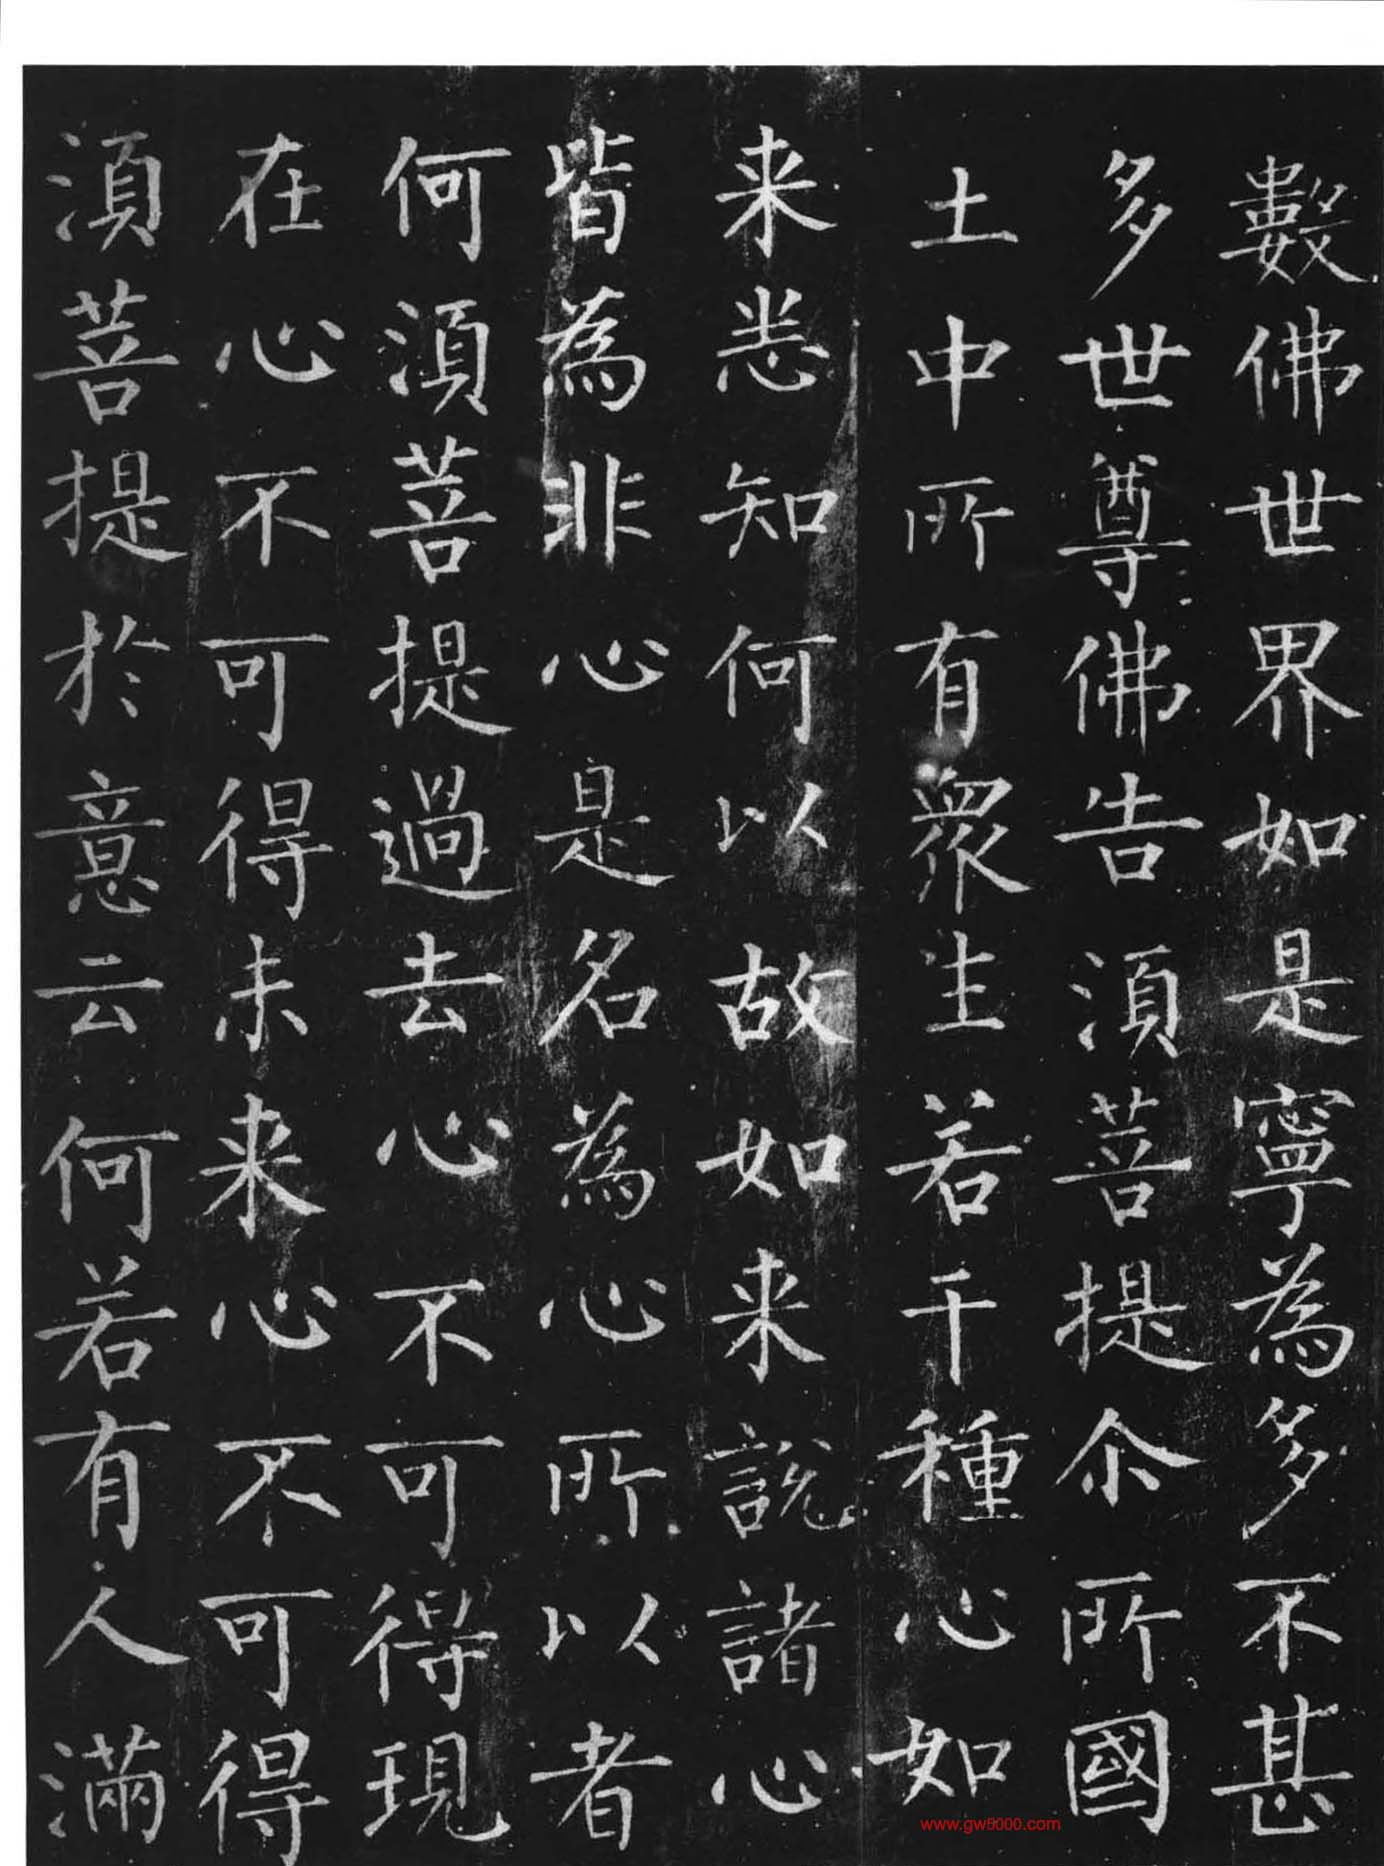 數佛世界如是寧為多不甚
多世尊佛告湏菩提尒所國
土中所有衆生若干種心如
来悉知何以故如来說諸心
皆為非心是名為心所以者
何湏菩提過去心不可得現
在心不可得未来心不可得
湏菩提於意云何若有人滿
www.gw8000.com